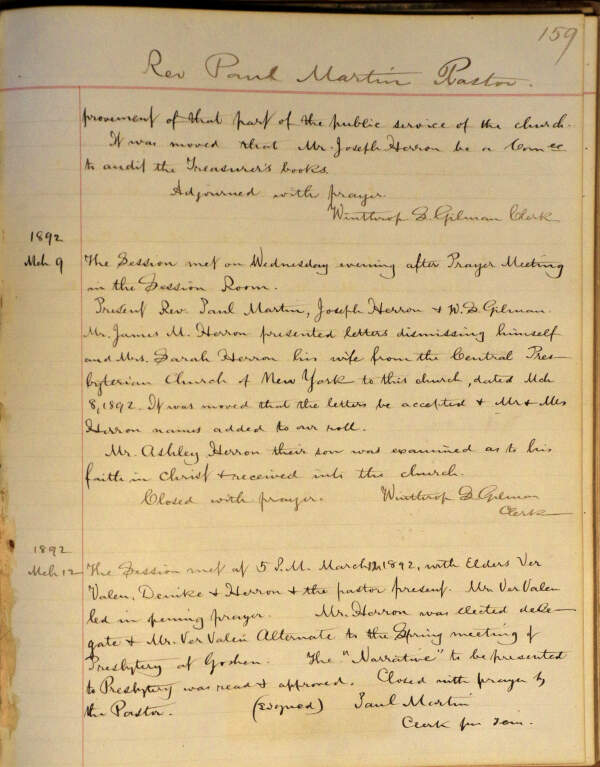 159
Rev Paul Martin Pastor.
provement of that part of the public service of the church.
It was moved that Mr. Joseph Herron be a Comee
to audit the Treasurer's books.
Adjourned with prayer.
Winthrop S. Gilman Clerk
1892
Mch 9 The Session met on Wednesday evening after Prayer Meeting
in the Session Room.
Present Rev. Paul Martin, Joseph Herron & W. S. Gilman.
Mr. James M. Herron presented letters dismissing himself
and Mrs. Sarah Herron his wife from the Central Pres-
byterian Church of New York to this church, dated Mch
8, 1892. It was moved that the letters be accepted & Mr & Mrs
Herron names added to our roll.
Mr. Ashley Herron their son was examined as to his
faith in Christ & received into the church.
Closed with prayer. Winthrop S. Gilman
Clerk
1892
Mch 12 The Session met at 5 P.M. March 12, 1892, with Elders Ver
Valen, Denike & Herron & the pastor present. Mr. Ver Valen
led in opening prayer. Mr. Herron was elected dele-
gate & Mr. Ver Valen Alternate to the Spring meeting of
Presbytery at Goshen. The "Narrative" to be presented
to Presbytery was read & approved. Closed with prayer by
the Pastor. (Signed) Paul Martin
Clerk pro tem.